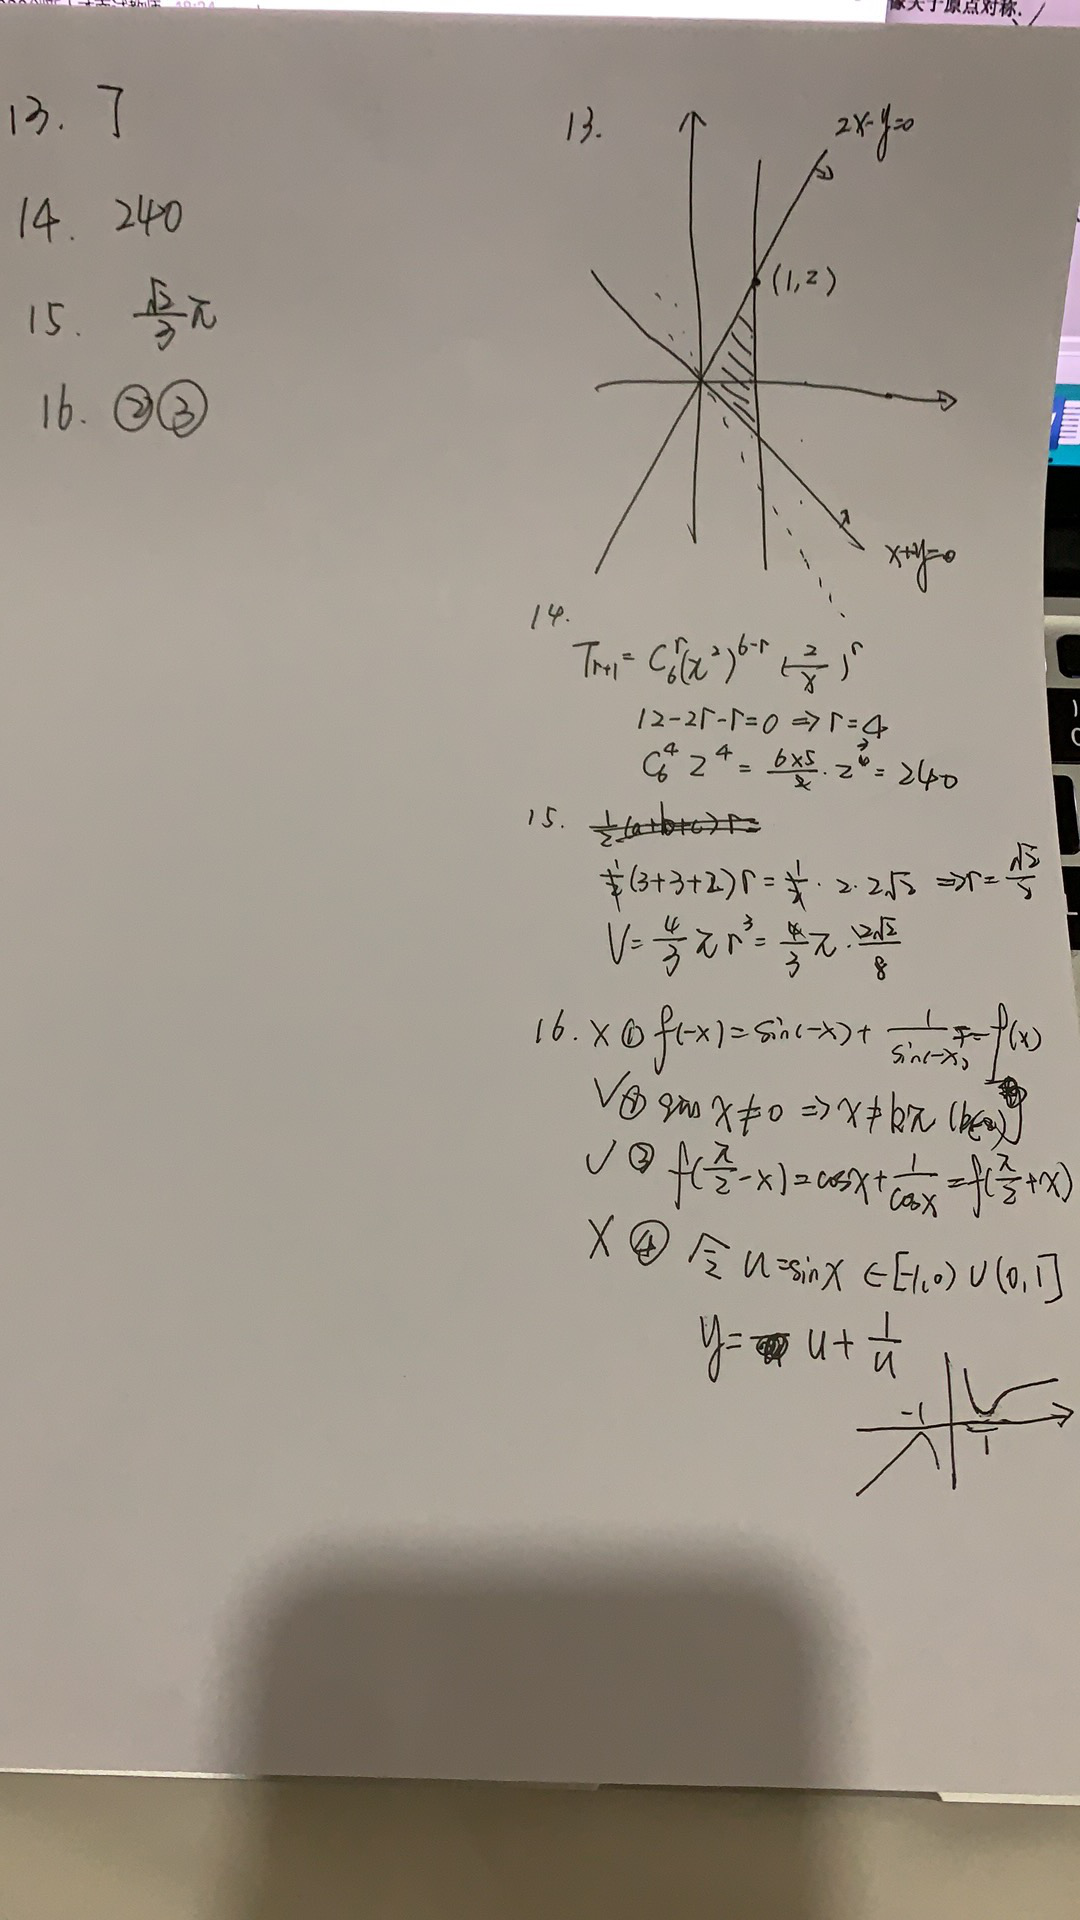 像关于原点对称.
13. 7
14. 240
15. √2/3 π
16. ②③
13.
2x-y=0
(1,2)
x+y=0
14.
T_{r+1} = C_6^r (x^2)^{6-r} (2/x)^r
12-2r-r=0 ⇒ r=4
C_6^4 2^4 = 6×5/2 · 2^4 = 240
15.
1/2 (3+3+2) r = 1/2 · 2 · 2√2 ⇒ r = √2/2
V = 4/3 π r^3 = 4/3 π · 2√2/8
16. × ① f(-x) = sin(-x) + 1/sin(-x) = -f(x)
√ ② sin x ≠ 0 ⇒ x ≠ kπ (k∈Z)
√ ③ f(π/2 - x) = cosx + 1/cosx = f(π/2 + x)
× ④ u = sinx ∈ [-1,0) ∪ (0,1]
y = u + 1/u
-1
1